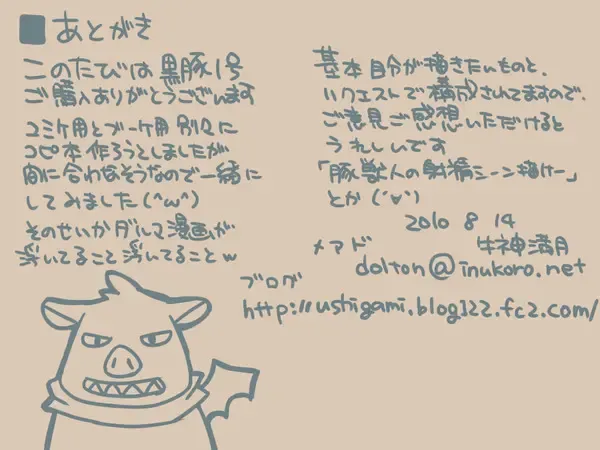 ■あとがき
このたびは黒豚1号
ご購入ありがとうございます
コミケ用とブーケ用別々に
コピ本作ろうとしましたが
間に合わなそうなので一緒に
してみました(^ω^)
そのせいかダルマ漫画が
浮いてること浮いてることw
基本自分が描きたいものと、
リクエストで構成されてますので、
ご意見ご感想いただけると
うれしいです
「豚獣人の射精シーン描けー」
とか(´∀`)
2010 8 14
牛神満月
メアド
dolton@inukoro.net
ブログ
http://ushigami.blog122.fc2.com/